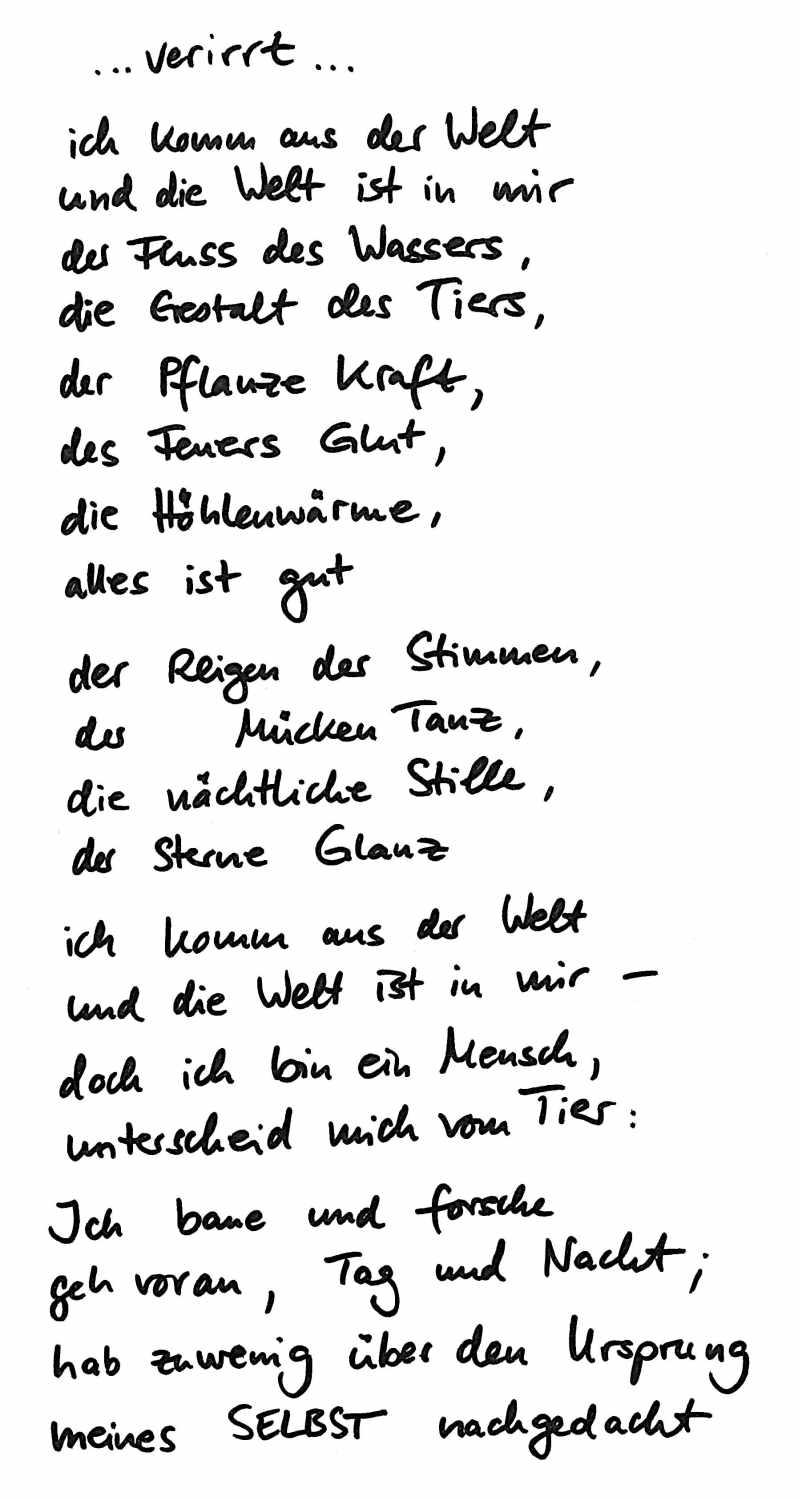 ...verirrt...
ich komm aus der Welt
und die Welt ist in mir
der Fluss des Wassers,
die Gestalt des Tiers,
der Pflanze Kraft,
des Feuers Glut,
die Höhlenwärme,
alles ist gut
der Reigen der Stimmen,
der Mücken Tanz,
die nächtliche Stille,
der Sterne Glanz
ich komm aus der Welt
und die Welt ist in mir –
doch ich bin ein Mensch,
unterscheid mich vom Tier:
Ich baue und forsche
geh voran, Tag und Nacht;
hab zuwenig über den Ursprung
meines SELBST nachgedacht